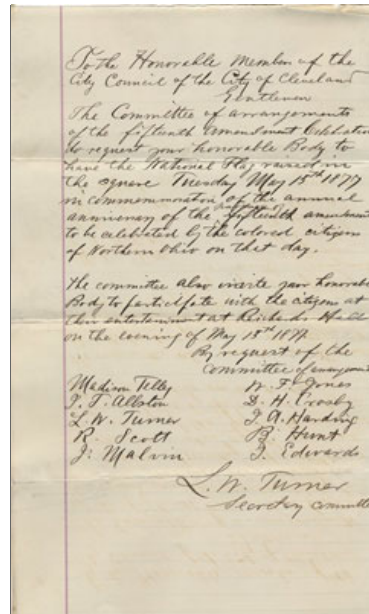 To the Honorable Member of the
City Council of the City of Cleveland
Gentlemen
The Committee of arrangements
of the fifteenth amendment Celebration
do request your honorable Body to
have the National Flag raised on
the square Tuesday May 15th 1877
in commemoration of the annual
anniversary of the fifteenth amendment
to be celebrated by the colored citizens
of Northern Ohio on that day.
The committee also invite your honorable
Body to participate with the citizens at
their entertainment at Hall
on the evening of May 15th 1877
By request of the
Committee of arrangements
Madison Tilley W. F. Jones
T. T. Allston D. H. Crosby
L. W. Turner J. A. Harding
R. Scott B. Hunt
J. Malvin J. Edwards
L. W. Turner
Secretary committee